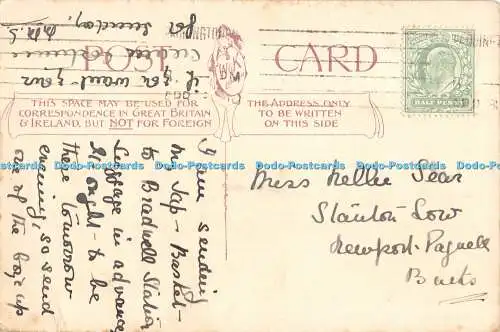 POST CARD
THIS SPACE MAY BE USED FOR
CORRESPONDENCE IN GREAT BRITAIN
& IRELAND, BUT NOT FOR FOREIGN
THE ADDRESS ONLY
TO BE WRITTEN
ON THIS SIDE
HALF PENNY
I am sending
my Jap-Basket
to Bradwell Station
Luggage in advance
It ought to be
there tomorrow
evening, so send
one of the boys up
if you want your
for Sunday.
Miss Nellie Sear
Stanton Low
Newport-Pagnell
Bucks
Dodo-Postcards Dodo-Postcards Dodo-Postcards Dodo-Postcards Dodo-Postcards